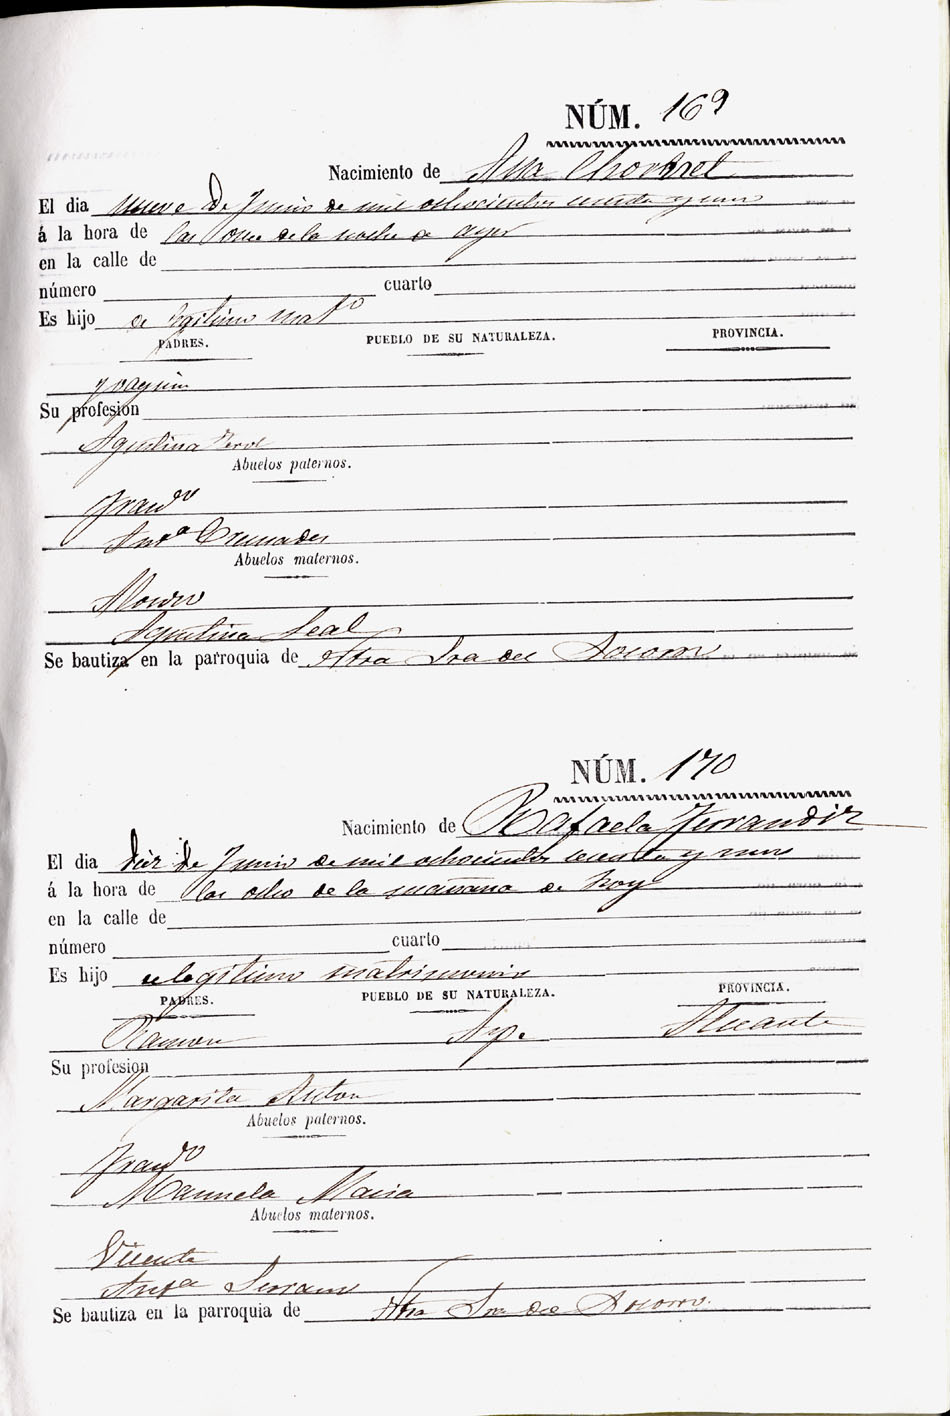 NÚM. 169
Nacimiento de Ana Chorret
El dia nueve de Junio de mil ochocientos sesenta y uno
á la hora de las once de la noche de ayer
en la calle de
número cuarto
Es hijo de legitimo mat.º
PADRES. PUEBLO DE SU NATURALEZA. PROVINCIA.
Joaquin
Su profesion
Agustina
Abuelos paternos.
Fran.co
Ant.a Cremades
Abuelos maternos.
Alonso
Agustina Leal
Se bautiza en la parroquia de Ntra Sra del Socorro
NÚM. 170
Nacimiento de Rafaela Ferrandiz
El dia diez de Junio de mil ochocientos sesenta y uno
á la hora de las ocho de la mañana de hoy
en la calle de
número cuarto
Es hijo de legitimo matrimonio
PADRES. PUEBLO DE SU NATURALEZA. PROVINCIA.
Ramon Asp.e Alicante
Su profesion
Margarita Anton
Abuelos paternos.
Fran.co
Manuela Macia
Abuelos maternos.
Vicente
Ant.a Serrano
Se bautiza en la parroquia de Ntra Sra del Socorro.